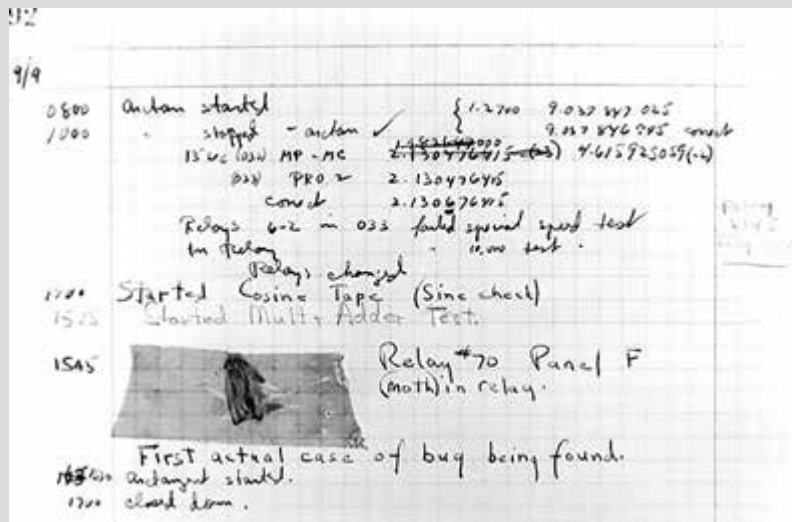 92
9/9
0800 antan started { 1.2700 9.037 847 025
1000 " stopped - antan ✓ 9.037 846 795 correct
13" uc (032) MP - MC 2.130476415 (-3) 4.615925059 (-2)
(033) PRO 2 2.130476415
correct 2.130676415
Relays 6-2 in 033 failed special speed test
in Relay " 10,000 test .
Relays changed
1100 Started Cosine Tape (Sine check)
1525 Started Mult + Adder Test.
1545 Relay #70 Panel F
(moth) in relay.
First actual case of bug being found.
antangent started.
1700 closed down .